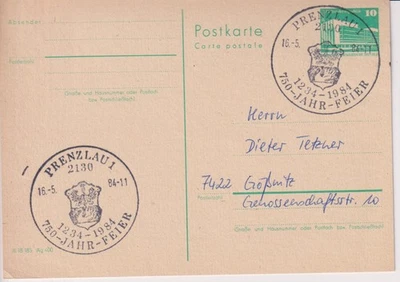 Absender:
Postkarte
Carte postale
10
PRENZLAU 1
2130
16.-5.
84-11
1234-1984
750-JAHR-FEIER
Straße und Hausnummer oder Postfach
Herrn
Dieter Tetzner
7422 Gößnitz
Genossenschaftsstr. 10
PRENZLAU 1
2130
16.-5. 84-11
1234-1984
750-JAHR-FEIER
Straße und Hausnummer oder Postfach